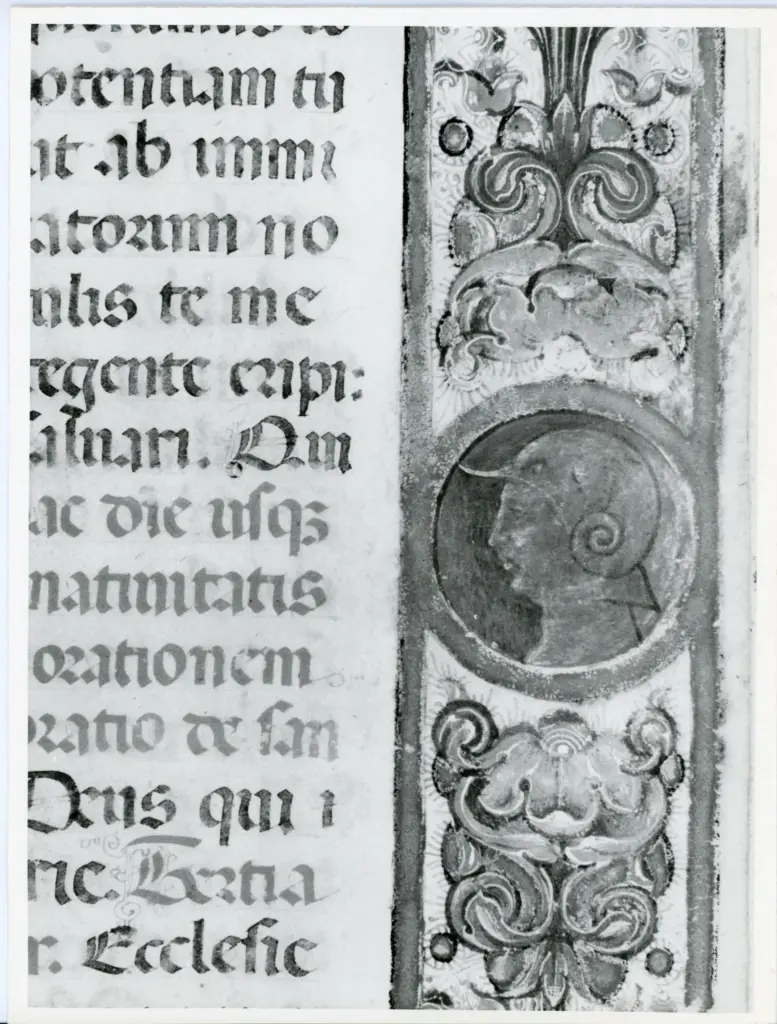 potentiam tu
at ab immi
catorum no
culis te me
tegente eripi:
saluari. Qui
ac die usq3
natiuitatis
orationem
oratio de san
Deus qui i
ric. Tertia
r. Ecclesie